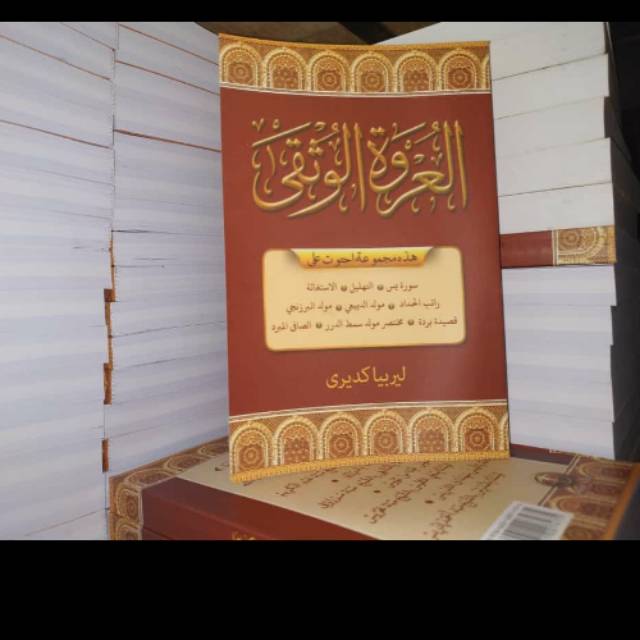 العروة الوثقى
هذه مجموعة احتوت على
سورة يس • التهليل • الاستغاثة
راتب الحداد • مولد الديبعي • مولد البرزنجي
قصيدة بردة • مختصر مولد سمط الدرر • الصافى المبرد
ليربيا كديرى